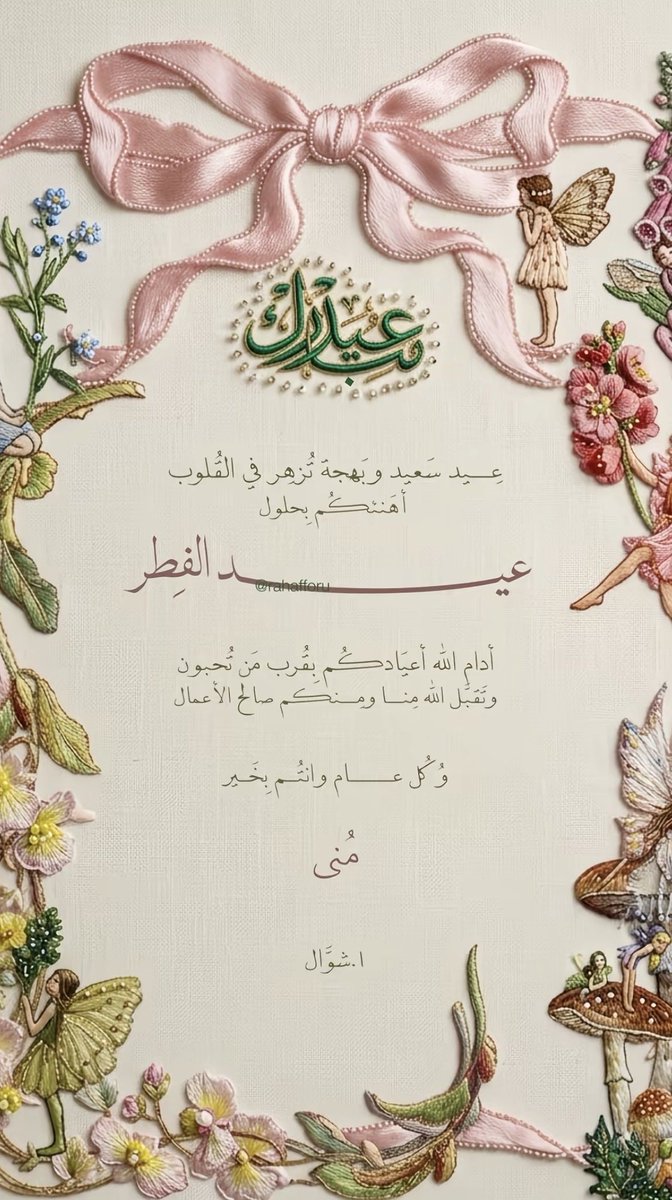 عيد مبارك
عِــيد سَعيد وبَهجة تُزهِر في القُلوب
أهَنئكُم بِحلول
عيــــد الفِطر
@rahafforu
أدام الله أعيَادكُم بِقُرب مَن تُحبون
وتَقبَّل الله مِنــا ومِـنكم صالح الأعمال
وُكُل عـــام وانتُـم بِخَـير
مُنى
١.شوَّال